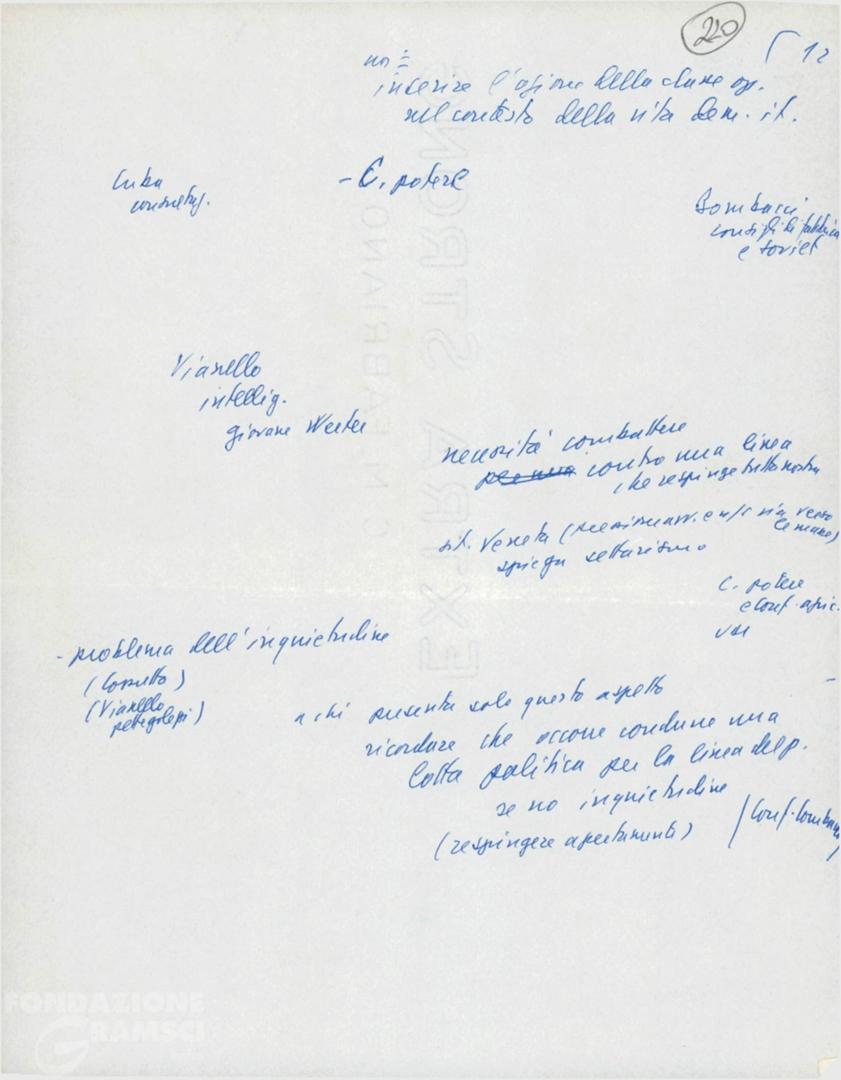 220
12
noi =
inserire l'azione della classe op.
nel contesto della vita dem. it.
Cuba
- C. potere
Bombacci
consigli di fabbrica
e soviet
Vianello
intellig.
giovane Werter
necessità combattere
contro una linea
che respinge tutto nostra
sit. Veneta
spiega settarismo
C. potere
e conf. agric.
- problema dell'inquietudine
(Cossutto)
(Vianello
pettegolezzi)
a chi presenta solo questo aspetto
ricordare che occorre condurre una
lotta politica per la linea del p.
se no inquietudine
(respingere apertamente)
EXTRA STRONG
C.M. FABRIANO
FONDAZIONE
GRAMSCI